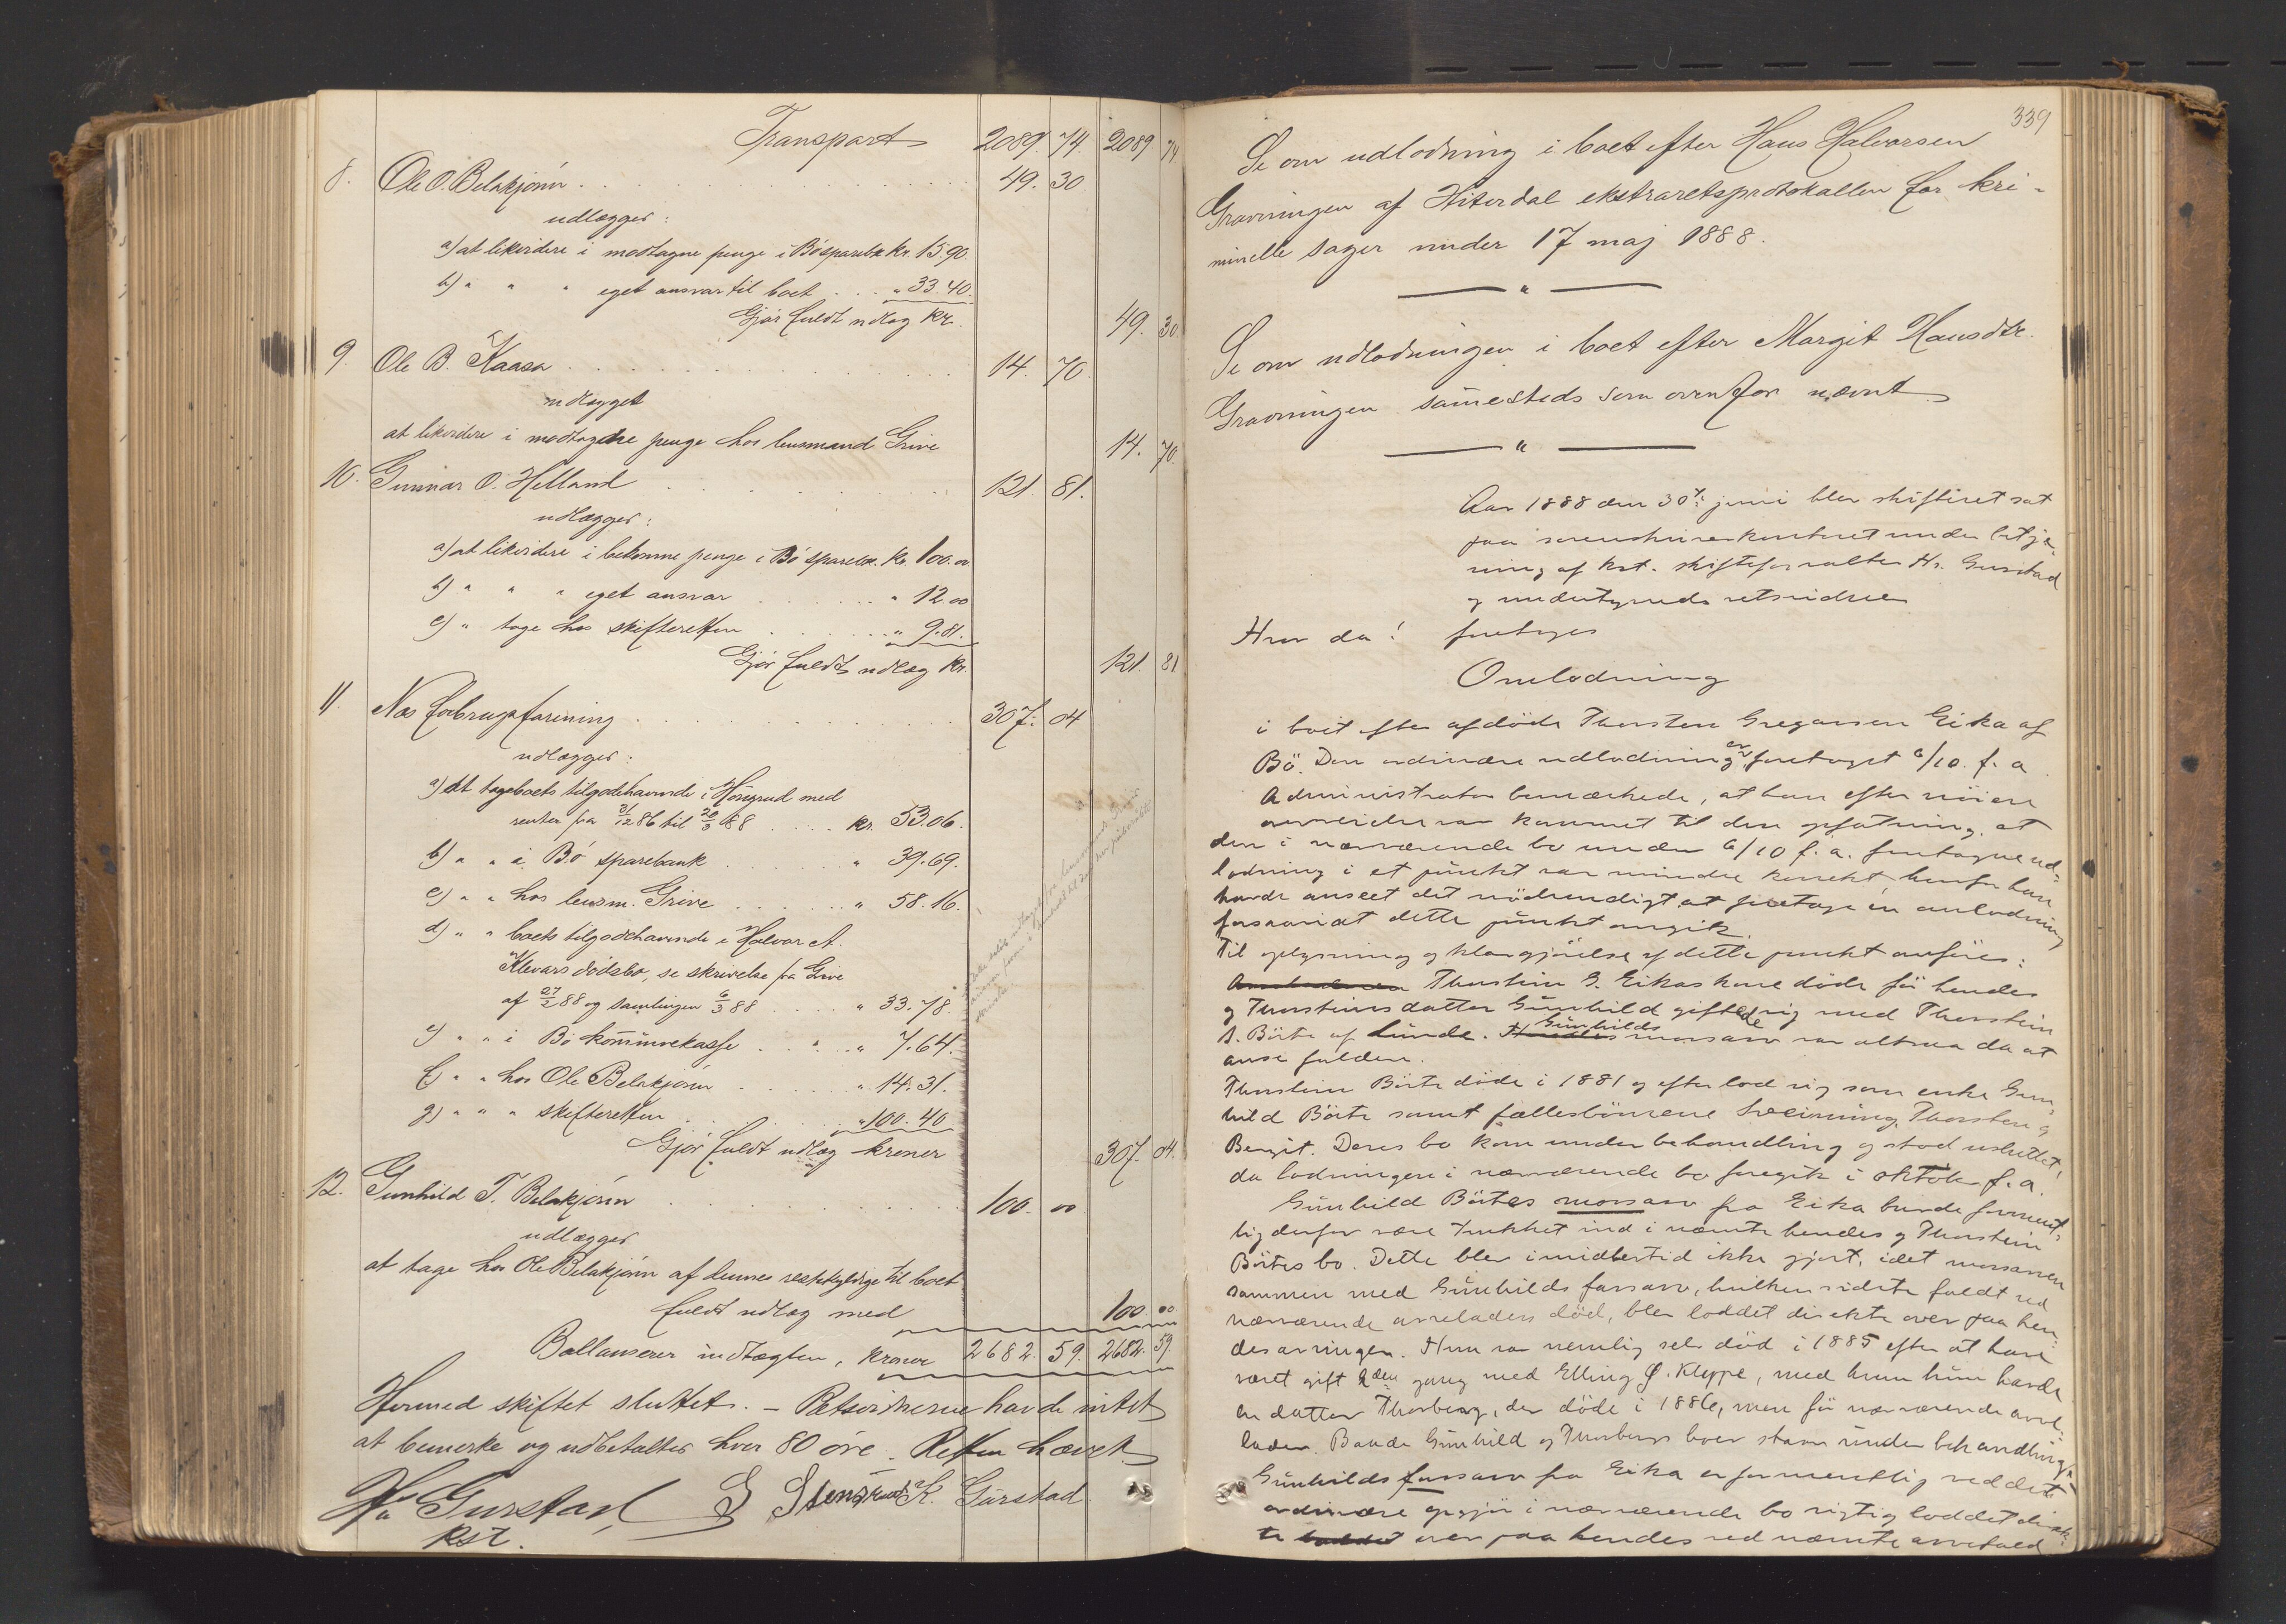 Transport 2089. 74. 2089 74
8. Ole O. Belakjønn 49. 30
udlægges:
a) at likvidere i modtagne penge i Bø sparebk kr. 15.90.
b) " " " eget ansvar til boet " 33.40.
Gjør fuldt udlæg kr. 49. 30
9. Ole B. Kaasa 14. 70.
udlægges
at likvidere i modtagene penge hos lensmand Grive 14. 70.
10. Gunnar O. Helland 121. 81.
udlægges:
a) at likvidere i bekomne penge i Bø sparebk. Kr. 100.00
b) " " " eget ansvar " 12.00
c) " tage hos skifteretten " 9.81.
Gjør fuldt udlæg kr. 121. 81
11. Næs forbrugsforening 307. 04
udlægges:
a) at tage boets tilgodehavende i Hørgrud med
renter fra 31/12 86 til 20/3 88 kr. 53.06.
b) " " i Bø sparebank " 39.69.
c) " " hos lensm. Grive " 58.16.
d) " " boets tilgodehavende i Halvor A.
Klevars dødsbo, se skrivelse fra Grive
af 27/2 88 og samlingen 6/3 88 " 33.78.
e) " " i Bø kommunekasse " 7.64.
f) " " hos Ole Belakjønn " 14.31.
g) " " " skifteretten " 100.40.
Gjør fuldt udlæg kroner 307. 04.
12. Gunhild T. Belakjønn 100. 00
udlægges
at tage hos Ole Belakjønn af dennes restskyldige til boet
fuldt udlæg med 100. 00
Ballanserer indtægten, kroner 2682. 59. 2682. 59.
Hermed skiftet sluttet. – Retsvidnerne havde intet
at bemerke og udbetaltes hver 80 øre. Retten hævet.
Gurstad S Stensrud K. Gurstad
kst.
339
Se om udlodning i boet efter Hans Halvorsen
Gravningen af Hiterdal ekstraretsprotokollen for kri-
minelle sager under 17 maj 1888.
"
Se om udlodningen i boet efter Margit Hansdtr.
Gravningen samesteds som ovenfor nævnt
"
Aar 1888 den 30te juni blev skifteret sat
paa sorenskriverkontoret under betje-
ning af kst. skifteforvalter Hr. Gurstad
og undertegnede retsvidner
Hvor da! foretoges
Omlodning
i boet efter afdøde Thorsten Gregarsen Eika af
Bø. Den ordinære udlodning er foretaget 6/10. f. a.
Administrator bemærkede, at han efter nøiere
overveielse var kommet til den opfatning, at
den i nærværende bo under 6/10 f. a. foretagne ud-
lodning i et punkt var mindre korrekt hvorfor han
havde anseet det nødvendigt at foretage en omlodning
forsaavidt dette punkt angik.
Til oplysning og klargjørelse af dette punkt anføres:
Thorstein G. Eikas kone døde før hendes
og Thorsteins datter Gunhild giftede sig med Thorstein
S. Børte af Lunde. Gunhilds morsarv var altsaa da at
anse falden.
Thorstein Børte døde i 1881 og efterlod sig som enke Gun-
hild Børte samt fællesbørnene Sveinung, Thorsten og
Bergit. Deres bo kom under behandling og stod usluttet,
da lodningen i nærværende bo foregik i oktober f. a.
Gunhild Børtes morsarv fra Eika burde forment-
lig derfor være trukket ind i nævnte hendes og Thorstein
Børtes bo. Dette blev imidlertid ikke gjort, idet morsarven
sammen med Gunhilds farsarv, hvilken sidste faldt ved
nærværende arveladers død, blev loddet direkte over paa hen-
des arvinger. Hun var nemlig selv død i 1885 efter at have
været gift 2den gang med Elling Ø. Kleppe, med hvem hun havde
en datter Thorberg, der døde i 1886, men før nærværende arve-
lader. Baade Gunhild og Thorbergs boer staar under behandling.
Gunhilds farsarv fra Eika er formentlig ved det
ordinære opgjør i nærværende bo rigtig loddet direk-
te over paa hendes ved nævnte arvefald